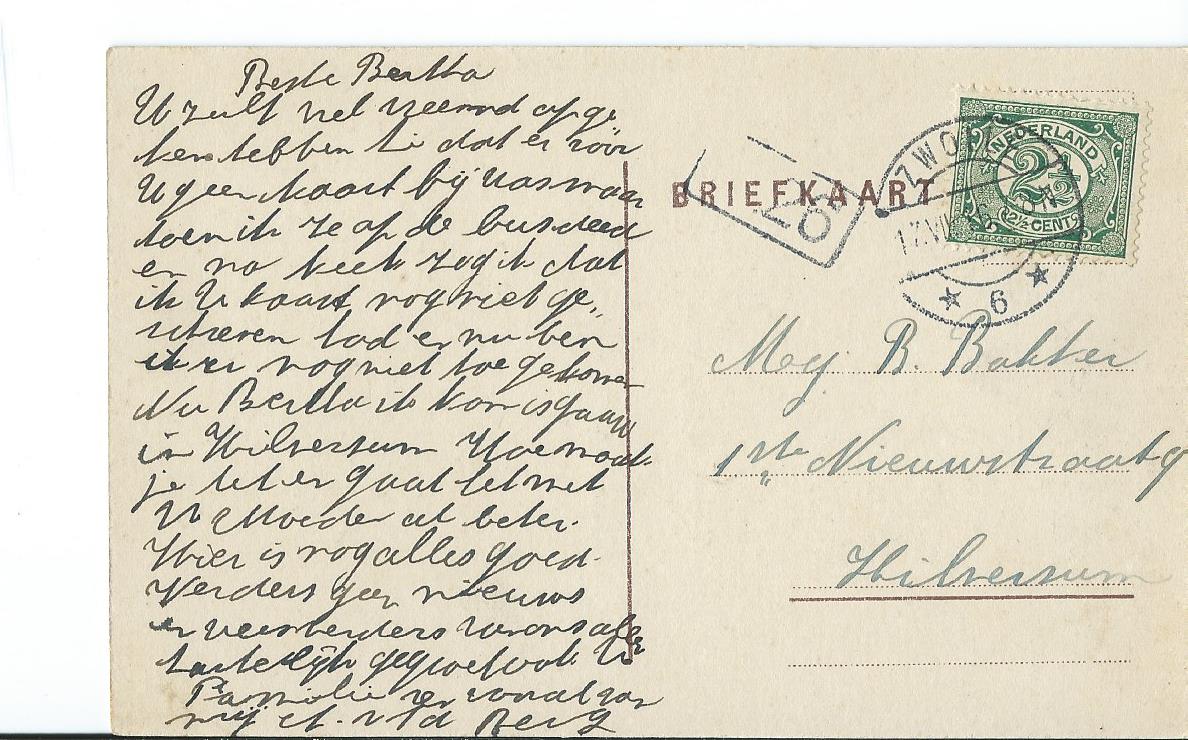 Beste Bertha
U zult wel vreemd opge
keken hebben he dat er voor
U geen kaart bij was maar
toen ik ze op de bus deed
en na keek zag ik dat
ik U kaart nog niet ge
schreven had en nu ben
ik er nog niet toe gekomen
Nu Bertha ik kom is gauw
in Hilversum Hoe maak
je het er gaat het met
U Moeder al beter.
Hier is nog alles goed.
Verders geen nieuws
en verders van ons alle
hartelijk gegroet ook U
Familie en vooral van
mij v/d Berg
BRIEFKAART
NEDERLAND
2½
2½ CENT
ZWO
6
Mej B. Bakker
1ste Nieuwstraat 9
Hilversum